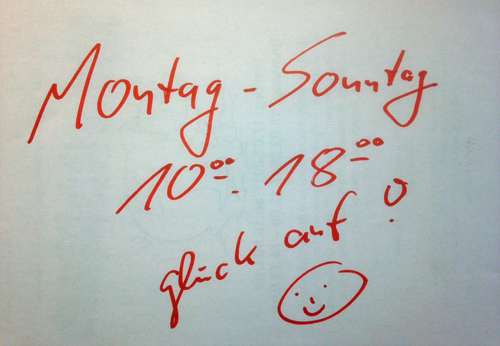 Montag - Sonntag
10⁰⁰ - 18⁰⁰
glück auf !